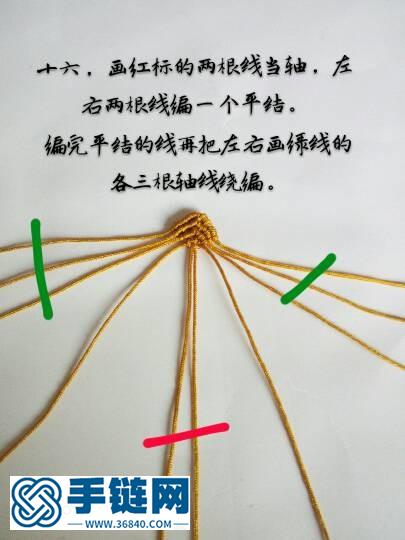 十六，画红标的两根线当轴，左
右两根线编一个平结。
编完平结的线再把左右画绿线的
各三根轴线绕编。
手链网
WWW.36840.COM